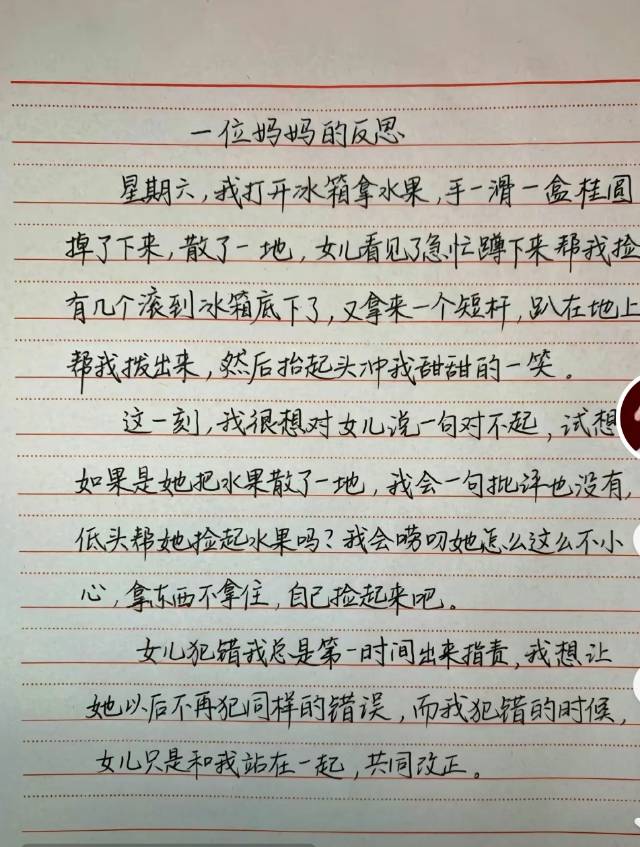 一位妈妈的反思
星期六，我打开冰箱拿水果，手一滑一盒桂圆
掉了下来，散了一地，女儿看见了急忙蹲下来帮我捡
有几个滚到冰箱底下了，又拿来一个短杆，趴在地上
帮我拨出来，然后抬起头冲我甜甜的一笑。
这一刻，我很想对女儿说一句对不起，试想
如果是她把水果散了一地，我会一句批评也没有，
低头帮她捡起水果吗？我会唠叨她怎么这么不小
心，拿东西不拿住，自己捡起来吧。
女儿犯错我总是第一时间出来指责，我想让
她以后不再犯同样的错误，而我犯错的时候，
女儿只是和我站在一起，共同改正。